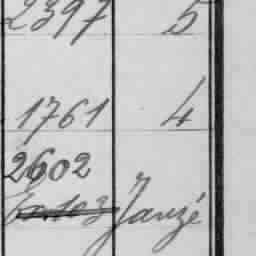 2397 5
1761 4
2602
Janzé